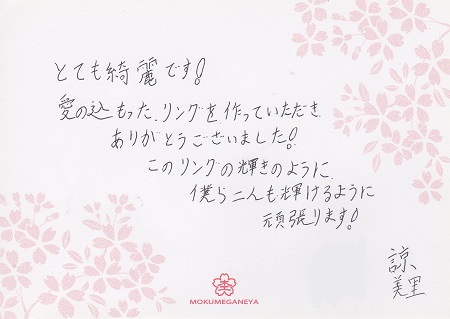 とても綺麗です!
愛の込もった、リングを作っていただき
ありがとうございました!
このリングの輝きのように
僕ら二人も輝けるように
頑張ります!
諒、
美里
MOKUMEGANEYA